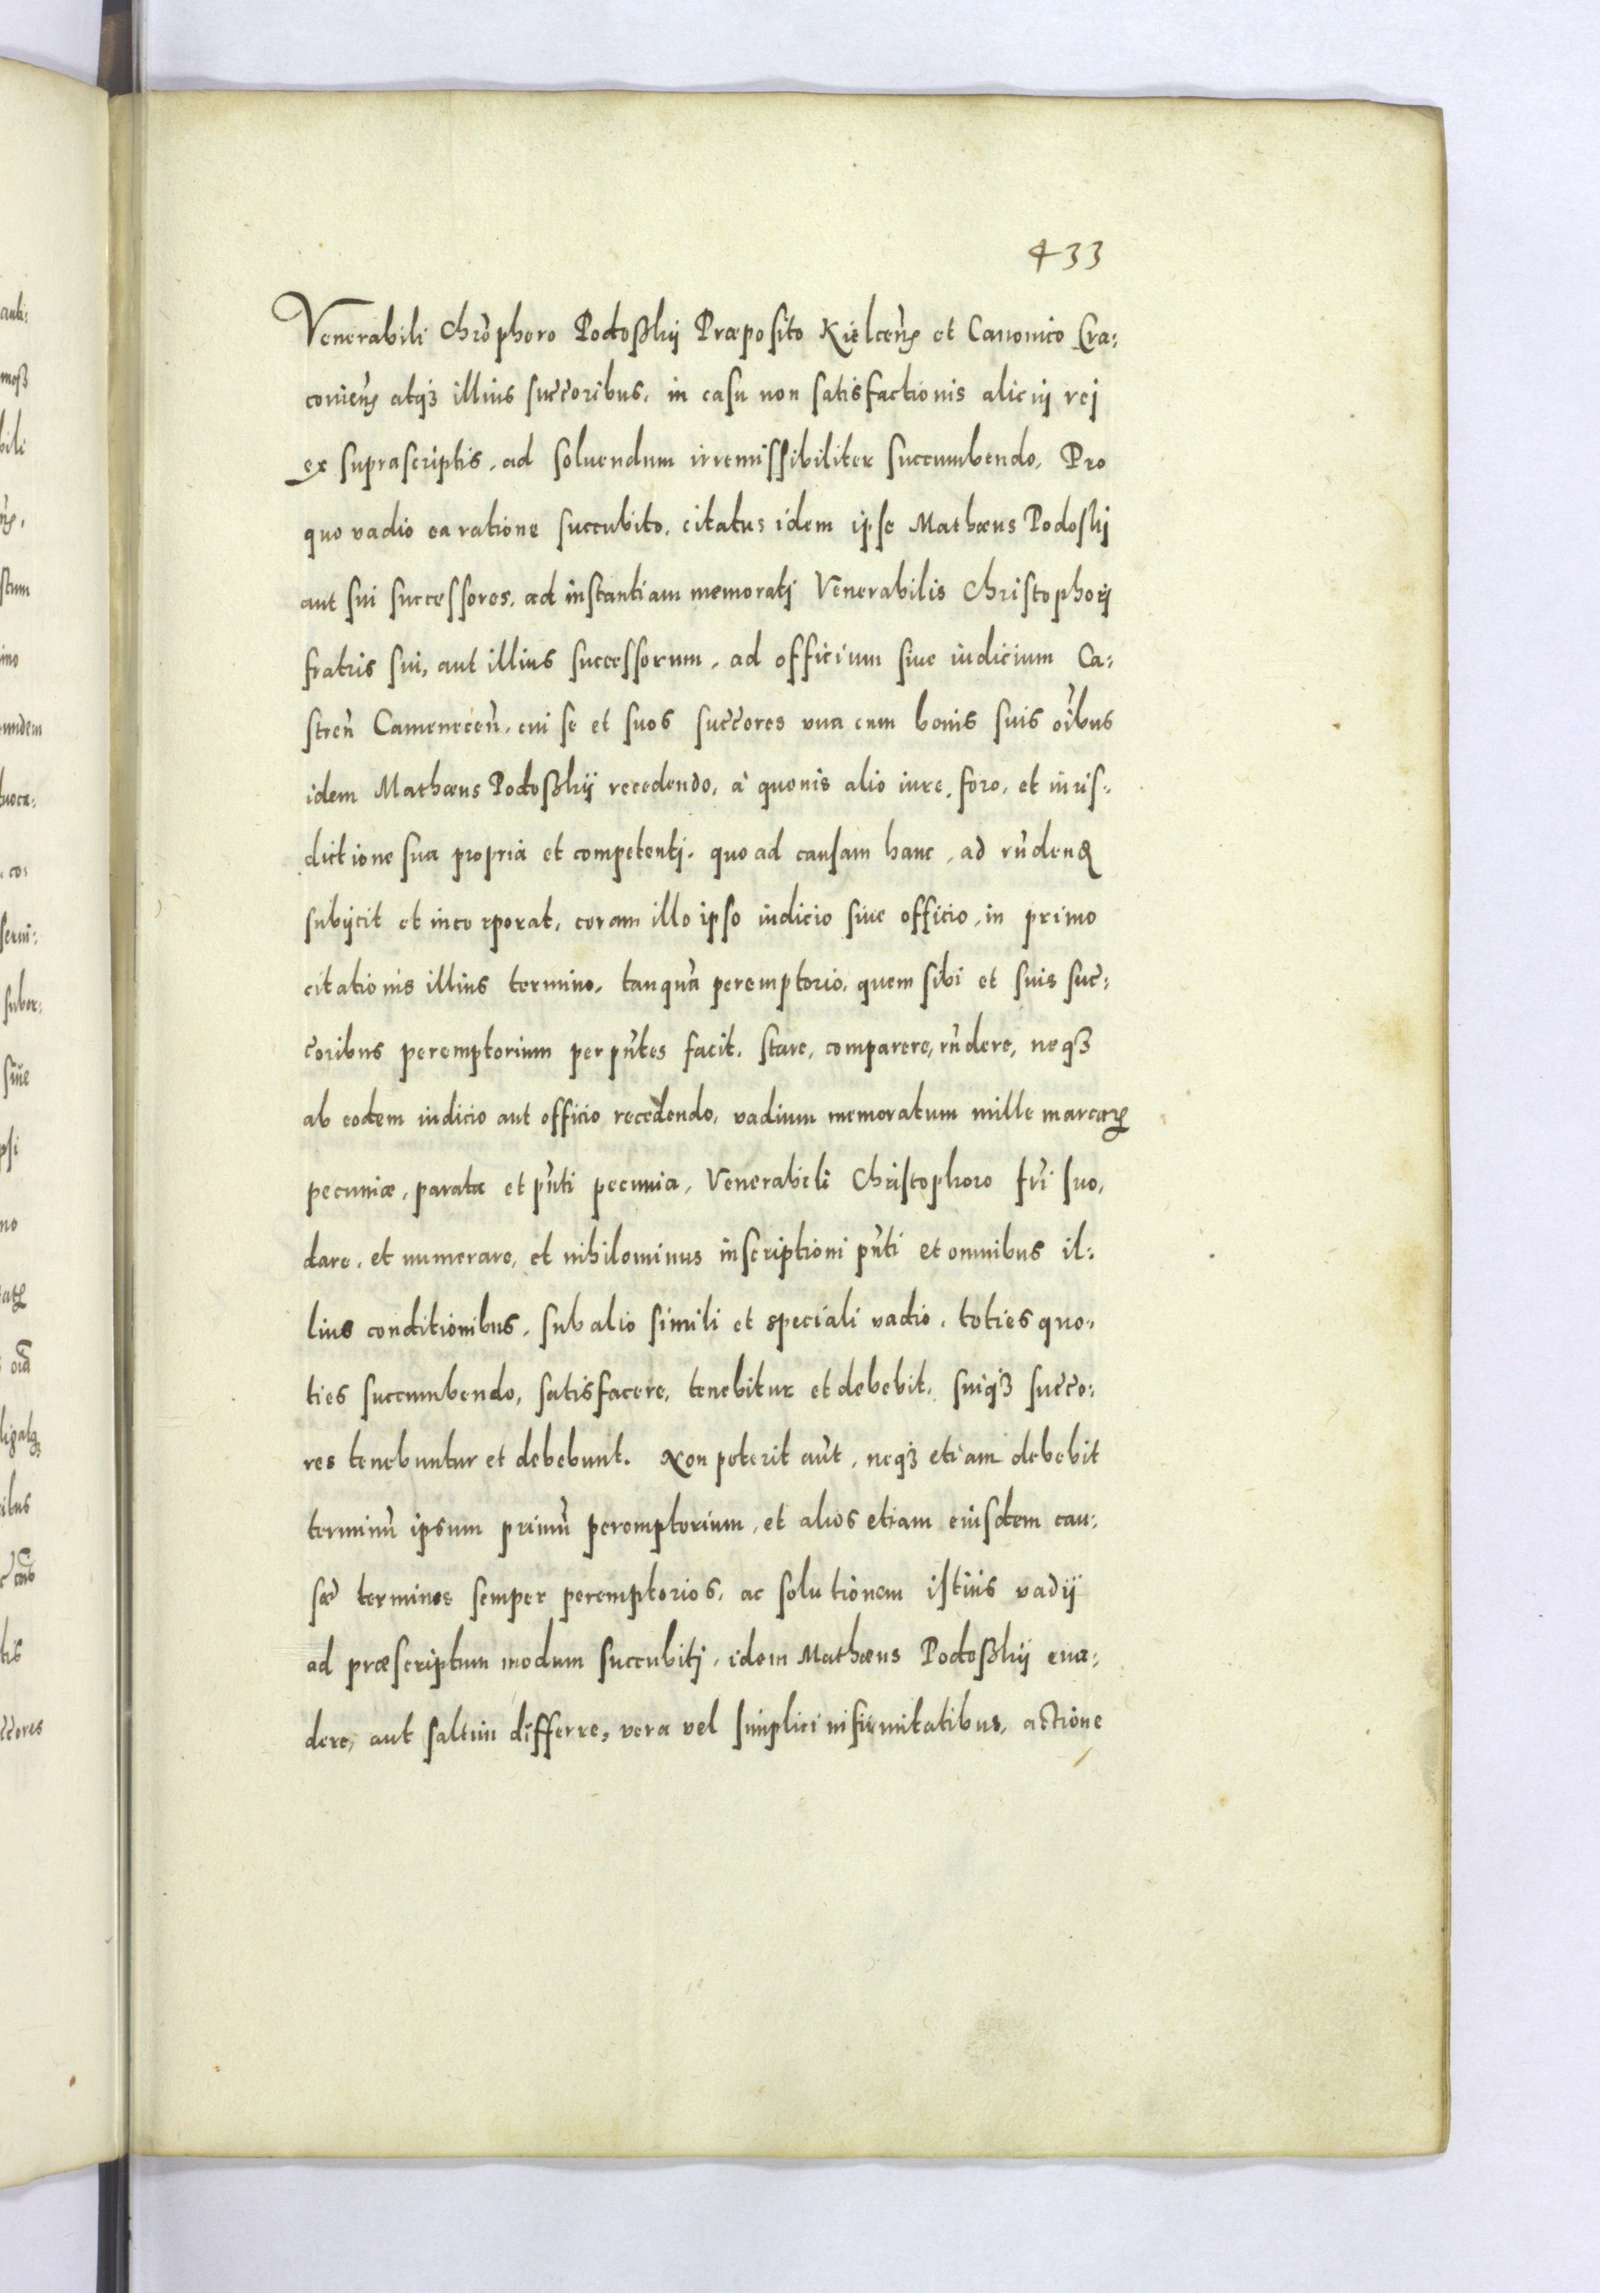 433
Venerabili Chrõphoro Podoßkij Præposito Kielceñ et Canonico Cra:
covieñ atqȝ illius succ̃oribus, in casu non satisfactionis alicuj rej
ex suprascriptis, ad soluendum irremissibiliter succumbendo, Pro
quo vadio ea ratione succubito, citatus idem ipse Mathæus Podoskj
aut sui successores, ad instantiam memoratj Venerabilis Christophorj
fratris sui, aut illius successorum, ad officium siue iudicium Ca:
streñ Camenecen̄, cui se et suos succ̃ores vna cum bonis suis oĩbus
idem Mathæus Podoßkij recedendo, à quouis alio iure, foro, et iuris:
dictione sua propria et competentj, quo ad causam hanc, ad rñdend
subijcit et incorporat, coram illo ipso iudicio siue officio, in primo
citationis illius termino, tanquã peremptorio, quem sibi et suis suc̃:
c̃oribus peremptorium per pñtes facit, stare, comparere, rñdere, neqȝ
ab eodem iudicio aut officio recedendo, vadium memoratum mille marcarꝝ
pecuniæ, parata et pñti pecunia, Venerabili Christophoro fr̃i suo,
dare, et numerare, et nihilominus inscriptioni pñti et omnibus il:
lius conditionibus, sub alio simili et speciali vadio, toties quo:
ties succumbendo, satisfacere, tenebitur et debebit, suiqȝ succ̃o:
res tenebuntur et debebunt. Non poterit aũt, neqȝ etiam debebit
terminũ ipsum primũ peremptorium, et alios etiam eiusdem cau:
sæ terminos semper peremptorios, ac solutionem istius vadij
ad præscriptum modum succubitj, idem Mathæus Podoßkij eua:
dere, aut saltim differre, vera vel simplici infirmitatibus, actione